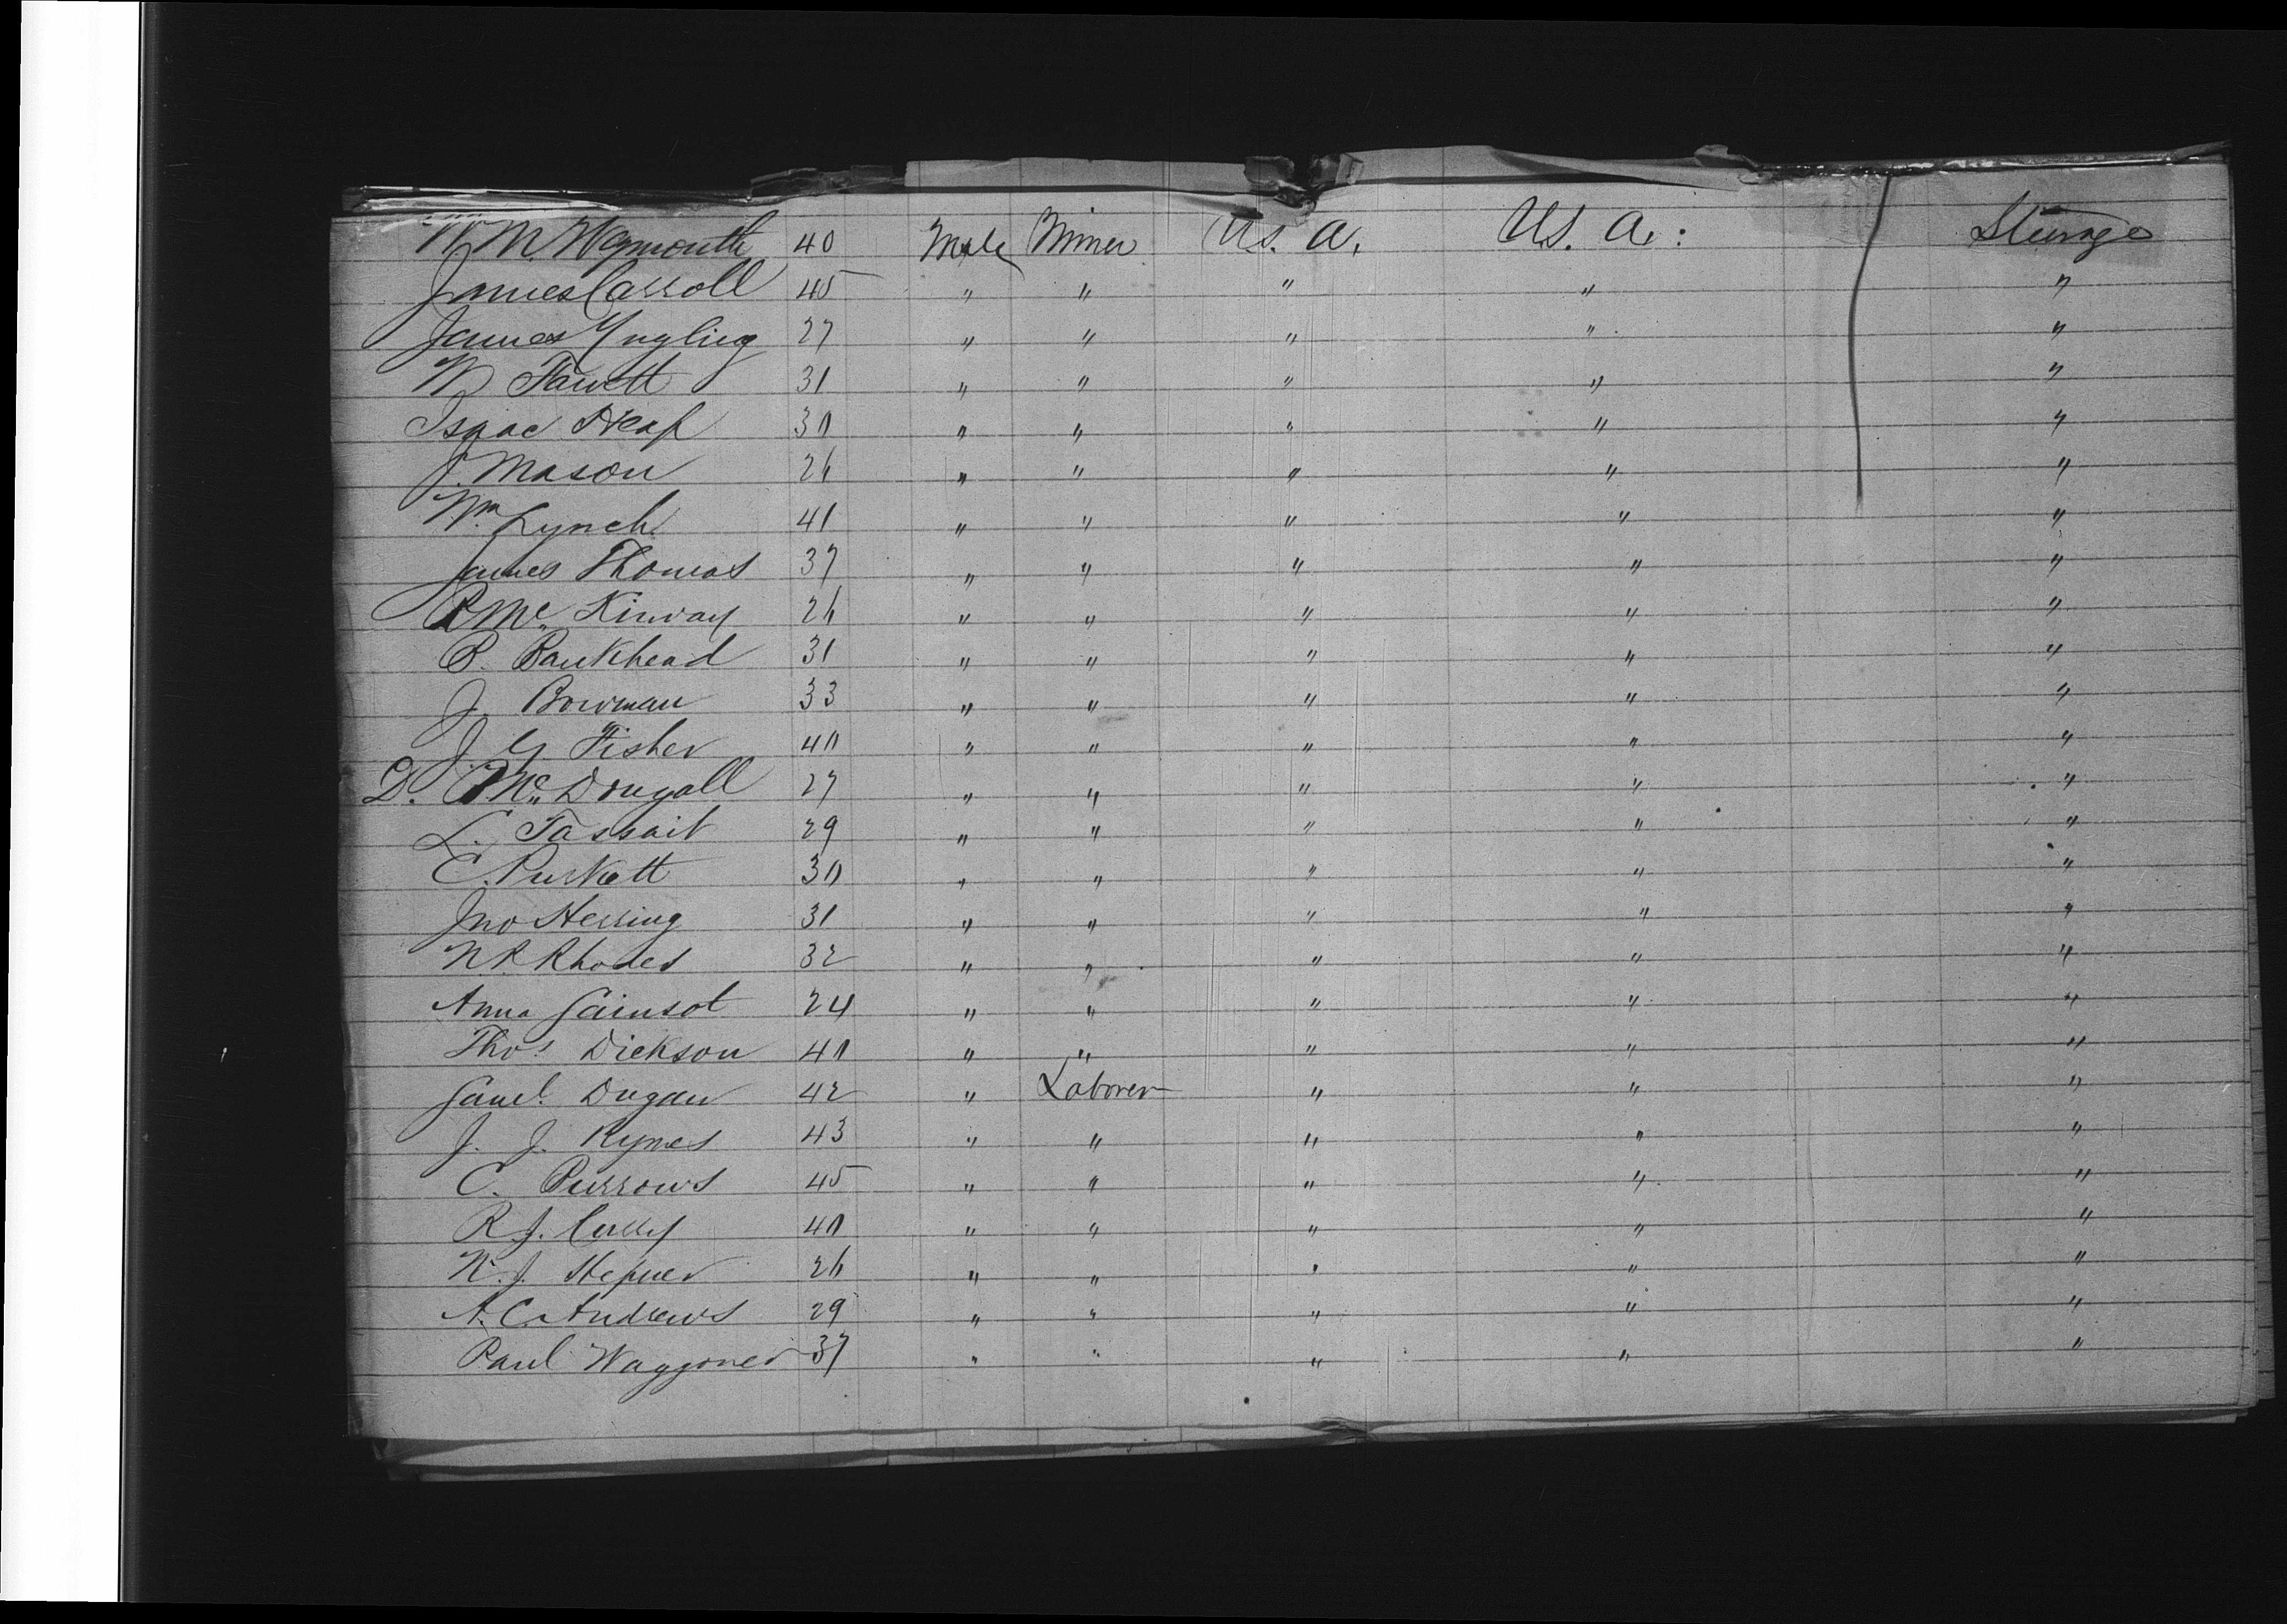 W. M. Weymouth 40 Male Miner U.S. A. U.S. A. Steerage
James Carroll 45 " " " " "
James Yngling 27 " " " " "
W Fawett 31 " " " " "
Isaac Heap 30 " " " " "
J. Mason 26 " " " " "
Wm Lynch 41 " " " " "
James Thomas 37 " " " " "
P Mc Kinvay 26 " " " " "
B. Bankhead 31 " " " " "
J. Bowman 33 " " " " "
J. G Fisher 40 " " " " "
D. Mc Dougall 27 " " " " "
L. Tassait 29 " " " " "
C. Puskett 30 " " " " "
Jno Herring 31 " " " " "
N R Rhodes 32 " " " " "
Anna Gainsot 24 " " " " "
Thos Dickson 40 " " " " "
Saml. Dugan 42 " Laborer " " "
J. J. Rymes 43 " " " " "
C. Burrows 45 " " " " "
R. J. Cussy 40 " " " " "
W. J. Hepner 26 " " " " "
A. C. Andrews 29 " " " " "
Paul Waggoner 37 " " " " "